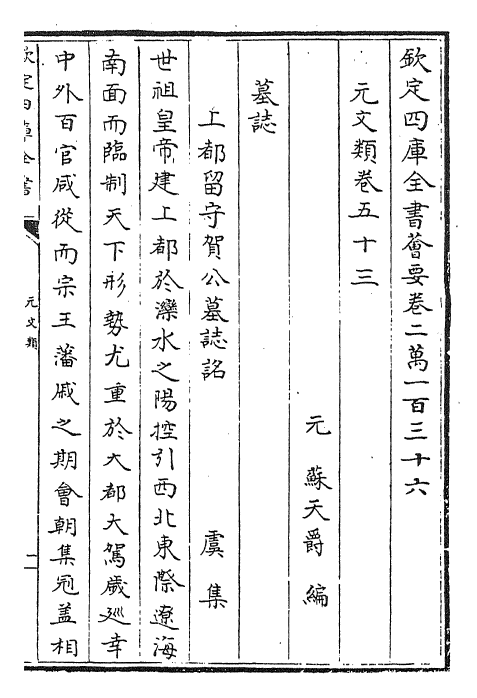 欽定四庫全書薈要卷二萬一百三十六
元文類卷五十三
元 蘇天爵 編
墓誌
上都留守賀公墓誌銘 虞集
世祖皇帝建上都於灤水之陽控引西北東際遼海
南面而臨制天下形勢尤重於大都大駕歲廵幸
中外百官咸從而宗王藩戚之期會朝集冠蓋相
欽定四庫全書
元文類
一